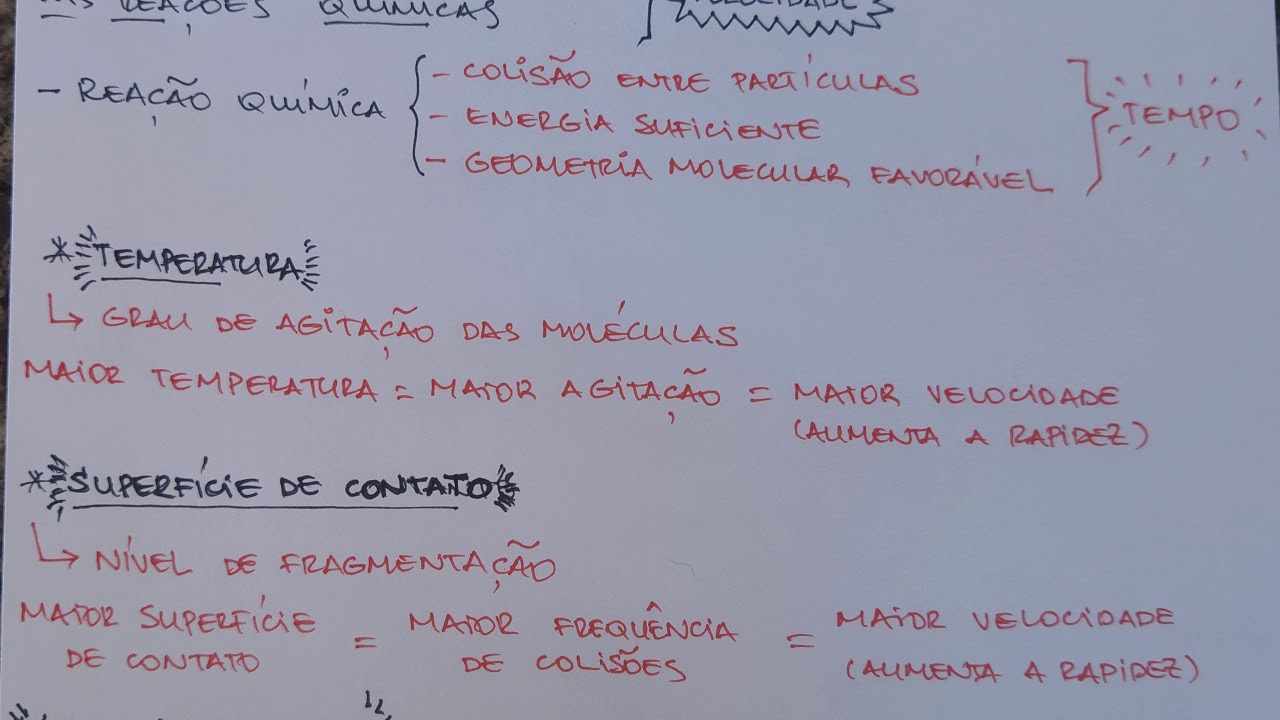 REAÇÕES QUÍMICAS
VELOCIDADE
- REAÇÃO QUÍMICA
- COLISÃO ENTRE PARTÍCULAS
- ENERGIA SUFICIENTE
- GEOMETRIA MOLECULAR FAVORÁVEL
TEMPO
* TEMPERATURA
↳ GRAU DE AGITAÇÃO DAS MOLÉCULAS
MAIOR TEMPERATURA = MAIOR AGITAÇÃO = MAIOR VELOCIDADE
(AUMENTA A RAPIDEZ)
* SUPERFÍCIE DE CONTATO
↳ NÍVEL DE FRAGMENTAÇÃO
MAIOR SUPERFÍCIE DE CONTATO = MAIOR FREQUÊNCIA DE COLISÕES = MAIOR VELOCIDADE
(AUMENTA A RAPIDEZ)